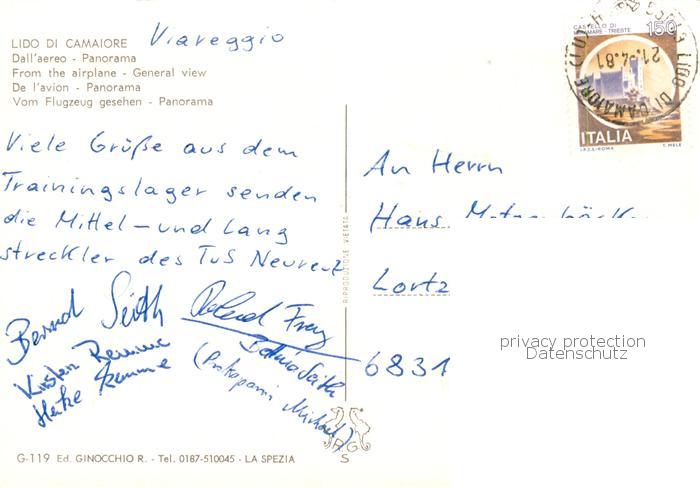 LIDO DI CAMAIORE Viareggio
Dall'aereo - Panorama
From the airplane - General view
De l'avion - Panorama
Vom Flugzeug gesehen - Panorama
Viele Grüße aus dem
Trainingslager senden
die Mittel-und Lang
streckler des TuS Neureut
Bernd Seith
Roland Frey
Heike
(Prokopani Michael)
An Herrn
Hans
Lortz
6831
privacy protection
Datenschutz
RIPRODUZIONE VIETATA
CASTELLO DI
MIRAMARE - TRIESTE
150
ITALIA
I.P.Z.S.-ROMA T. MELE
LIDO DI CAMAIORE (LU)
21.4.81
G-119 Ed. GINOCCHIO R. - Tel. 0187-510045 - LA SPEZIA